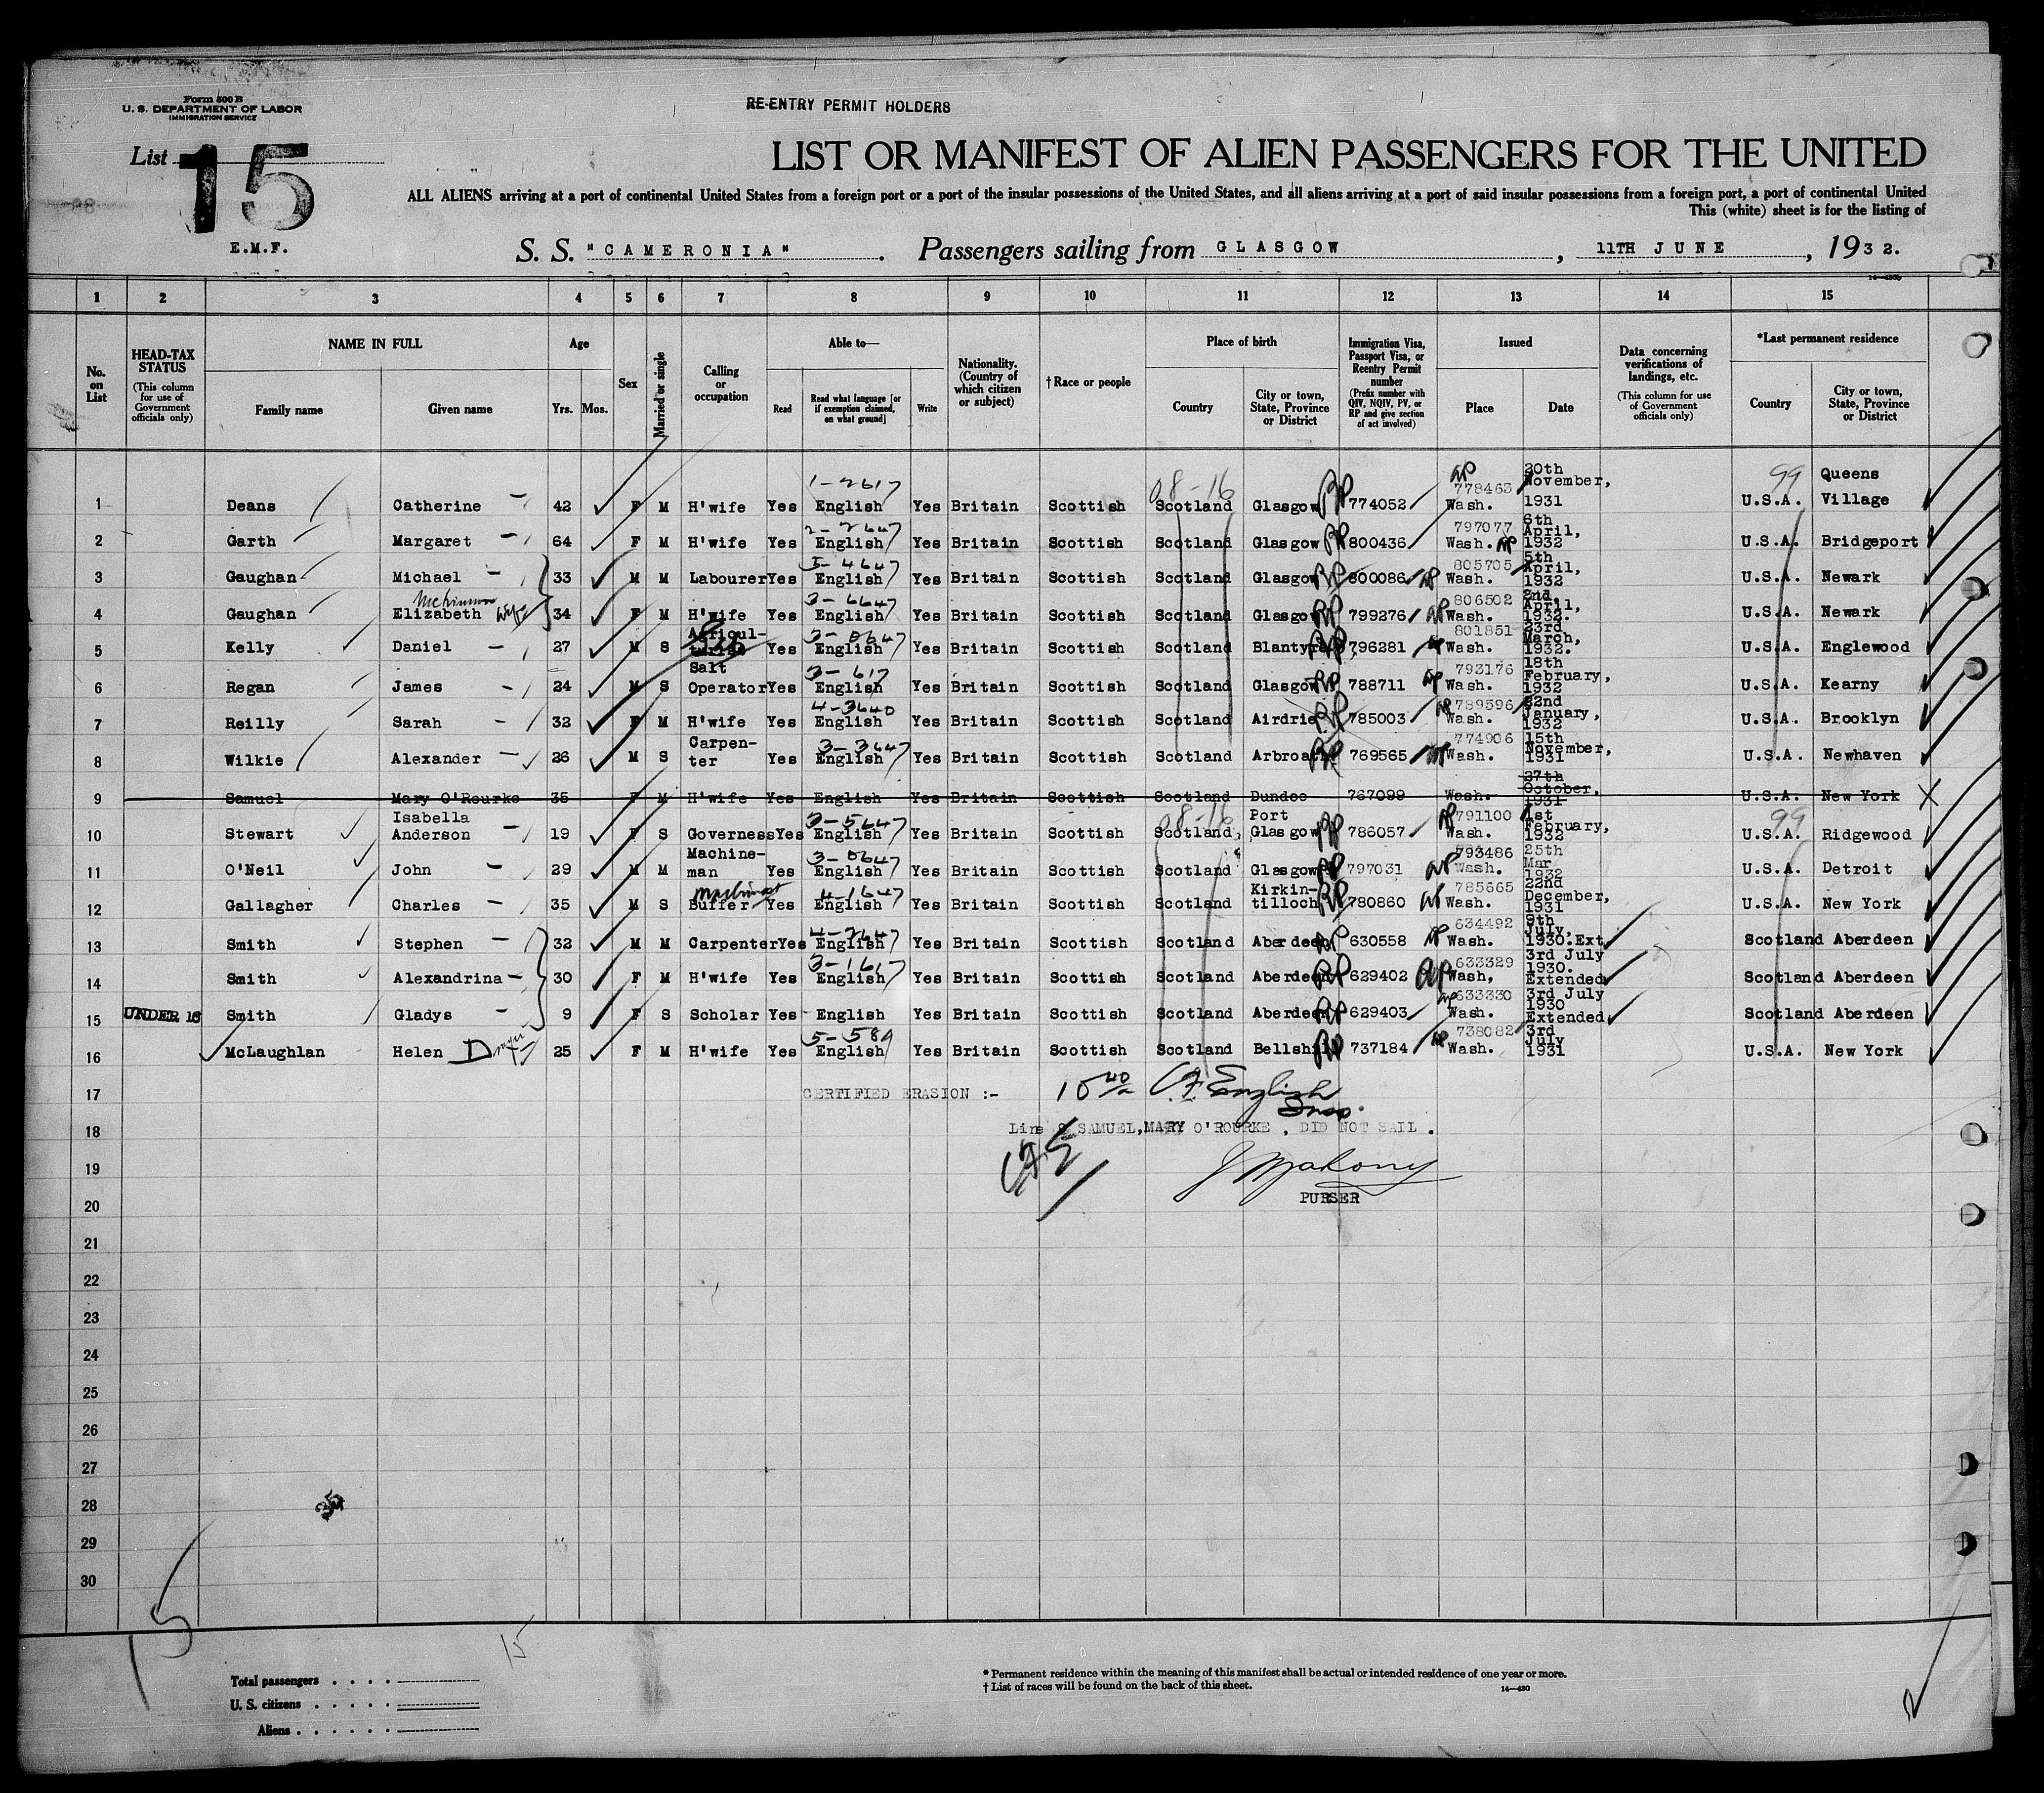 Form 500 B
U. S. DEPARTMENT OF LABOR
IMMIGRATION SERVICE
RE-ENTRY PERMIT HOLDERS
List 15
LIST OR MANIFEST OF ALIEN PASSENGERS FOR THE UNITED
ALL ALIENS arriving at a port of continental United States from a foreign port or a port of the insular possessions of the United States, and all aliens arriving at a port of said insular possessions from a foreign port, a port of continental United
This (white) sheet is for the listing of
E.M.F.
S. S. "CAMERONIA". Passengers sailing from GLASGOW, 11TH JUNE, 1932.
1 2 3 4 5 6 7 8 9 10 11 12 13 14 15
No. on List
HEAD-TAX STATUS (This column for use of Government officials only)
NAME IN FULL
Family name Given name
Age
Yrs. Mos.
Sex
Married or single
Calling or occupation
Able to—
Read Read what language [or if exemption claimed, on what ground] Write
Nationality. (Country of which citizen or subject)
† Race or people
Place of birth
Country City or town, State, Province or District
Immigration Visa, Passport Visa, or Reentry Permit number (Prefix number with QIV, NQIV, PV, or RP and give section of act involved)
Issued
Place Date
Data concerning verifications of landings, etc. (This column for use of Government officials only)
*Last permanent residence
Country City or town, State, Province or District
1 Deans Catherine 42 F M H'wife Yes 1-2617 English Yes Britain Scottish 08-16 Scotland Glasgow RP 774052 778463 Wash. 20th November, 1931 99 U.S.A. Queens Village
2 Garth Margaret 64 F M H'wife Yes 2-2647 English Yes Britain Scottish Scotland Glasgow RP 800436 797077 Wash. 6th April, 1932 U.S.A. Bridgeport
3 Gaughan Michael 33 M M Labourer Yes 5-4647 English Yes Britain Scottish Scotland Glasgow RP 800086 805705 Wash. 5th April, 1932 U.S.A. Newark
4 Gaughan Elizabeth wife 34 F M H'wife Yes 3-6647 English Yes Britain Scottish Scotland Glasgow RP 799276 806502 Wash. 2nd. April, 1932. U.S.A. Newark
5 Kelly Daniel 27 M S Agricul-turist Yes English Yes Britain Scottish Scotland Blantyre RP 796281 801851 Wash. 23rd March, 1932. U.S.A. Englewood
6 Regan James 24 M S Salt Operator Yes 3-617 English Yes Britain Scottish Scotland Glasgow RP 788711 793176 Wash. 18th February, 1932 U.S.A. Kearny
7 Reilly Sarah 32 F M H'wife Yes 4-3640 English Yes Britain Scottish Scotland Airdrie RP 785003 789596 Wash. 22nd January, 1932 U.S.A. Brooklyn
8 Wilkie Alexander 26 M S Carpen-ter Yes 3-3647 English Yes Britain Scottish Scotland Arbroath RP 769565 774906 Wash. 15th November, 1931 U.S.A. Newhaven
9 Samuel Mary O'Rourke 35 F M H'wife Yes English Yes Britain Scottish Scotland Dundee 767099 Wash. 27th October, 1931 U.S.A. New York
10 Stewart Isabella Anderson 19 F S Governess Yes 3-5647 English Yes Britain Scottish 08-16 Scotland, Port Glasgow RP 786057 791100 Wash. 1st February, 1932 99 U.S.A. Ridgewood
11 O'Neil John 29 M M Machine-man Yes 3-0647 English Yes Britain Scottish Scotland Glasgow RP 797031 793486 Wash. 25th Mar 1932 U.S.A. Detroit
12 Gallagher Charles 35 M S Machinist Buffer Yes 4-1647 English Yes Britain Scottish Scotland Kirkin-tilloch RP 780860 785665 Wash. 22nd December, 1931 U.S.A. New York
13 Smith Stephen 32 M M Carpenter Yes 4-2647 English Yes Britain Scottish Scotland Aberdeen RP 630558 634492 Wash. 9th July, 1930.Ext. Scotland Aberdeen
14 Smith Alexandrina 30 F M H'wife Yes 3-1617 English Yes Britain Scottish Scotland Aberdeen RP 629402 633329 Wash, 3rd July 1930. Extended Scotland Aberdeen
15 UNDER 16 Smith Gladys 9 F S Scholar Yes English Yes Britain Scottish Scotland Aberdeen RP 629403 633330 Wash. 3rd July 1930 Extended Scotland Aberdeen
16 McLaughlan Helen 25 F M H'wife Yes 5-589 English Yes Britain Scottish Scotland Bellshill RP 737184 738082 Wash. 3rd July 1931 U.S.A. New York
17 CERTIFIED ERASION :- C.F. English Insp.
18 Line 9 SAMUEL, MARY O'ROURKE , DID NOT SAIL .
CFE
19 J Mahony
20 PURSER
21
22
23
24
25
26
27
28 35
29
30
15
15
Total passengers
U. S. citizens
Aliens
* Permanent residence within the meaning of this manifest shall be actual or intended residence of one year or more.
† List of races will be found on the back of this sheet.
14—430